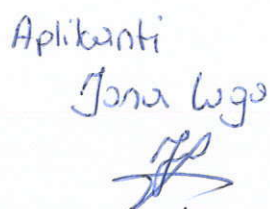 Aplikanti
Jona Lugo